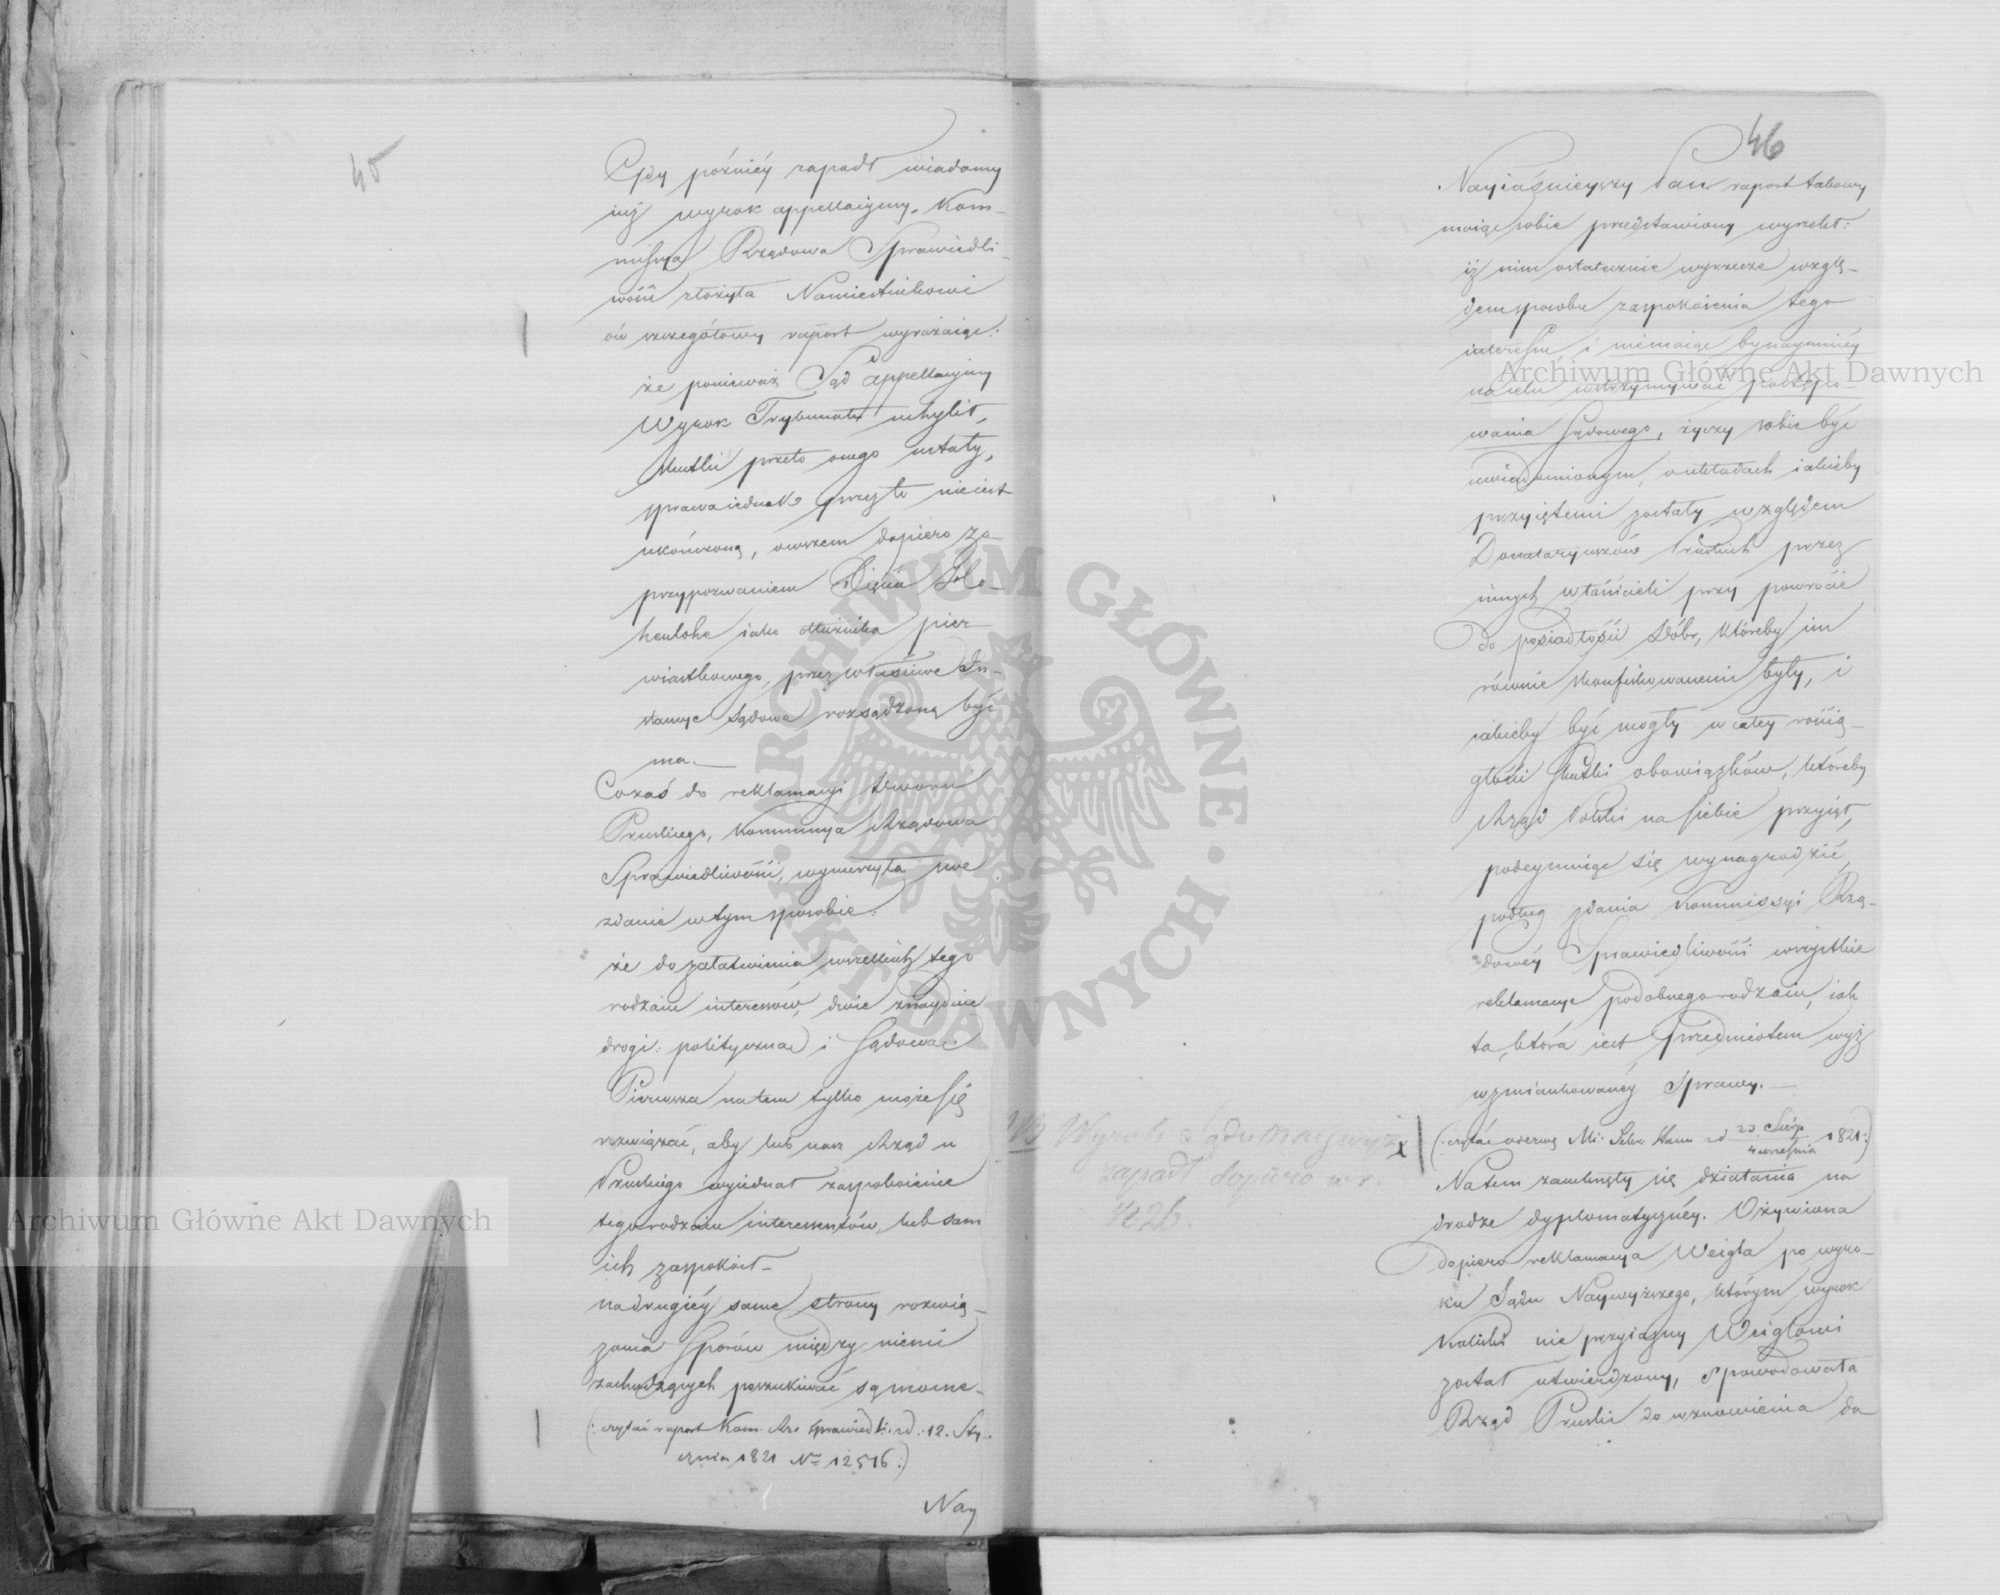 45
Gdy późniéy zapadł wiadomy
iuż wyrok appellacyiny, Kom-
missya Rządowa Sprawiedli-
wości złożyła Namiestnikowi
ów szczegółowy raport wyrażaiąc:
że ponieważ Sąd appellacyiny
Wyrok Trybunału uchylił,
skutki przeto onego ustały,
sprawa iednak przez to nie iest
ukończoną, owszem dopiero za
przypozwaniem Xięcia Ho-
henlohe iako dłużnika pier-
wiastkowego, przez właściwe In-
stancye Sądowe rozsądzoną być
ma.—
Cozaś do reklamacyi dworu
Pruskiego, Kommissya Rządowa
Sprawiedliwości, wymierzyła swe
zdanie w tym sposobie:
że do załatwienia wszelkich tego
rodzaiu interessów, dwie znayduie
drogi: polityczną i Sądową.
Pierwsza na tem tylko może się
rozwiązać, aby lub nasz Rząd u
Pruskiego wyiednał zaspokoienie
tego rodzaiu interessentów, lub sam
ich zaspokoił—
na drugiéy same strony rozwią-
zania Sporów między niemi
zachodzących poszukiwać są mocne—
(: czytać raport Kom. Rz. Sprawiedli. z d. 12. Sty-
cznia 1821 No 12516.:)
Nay
46
Nayiaśnieyszy Pan raport takowy
maiąc sobie przedstawiony wyrzekł:
iż nim ostatecznie wyrzecze wzglę-
dem sposobu zaspokoienia tego
interessu, i niemaiąc bynaymniéy
na celu wstrzymywać postępo-
wania Sądowego, życzy sobie być
uwiadomionym, o układach iakieby
przyiętemi zostały względem
Donataryuszów Pruskich przez
innych właścicieli przy powrocie
do posiadłości Dóbr, któreby im
równie skonfiskowanemi były, i
iakieby być mogły w całey rozcią-
głości skutki obowiązków, któreby
Rząd Polski na siebie przyiął,
podeymuiąc się wynagrodzić
podług zdania Kommissyi Rzą-
dowéy Sprawiedliwości wszystkie
reklamacye podobnego rodzaiu, iak
ta, która iest przedmiotem wyż
wzmiankowanéy Sprawy.—
(: czytać odezwę Mi: Sekr: Stanu z d 23 Sierp / 4 września 1821:)
Na tem zamknęły się działania na
drodze dyplomatycznéy. Ożywiona
dopiero reklamacya Weigla po wyro-
ku Sądu Naywyższego, którym wyrok
Kaliski nie przyiazny Weiglowi
został utwierdzony, spowodowała
Rząd Pruski do wznowienia do
NB Wyrok Sądu Naywyż: x
zapadł dopiero w r.
1826.
Archiwum Główne Akt Dawnych
Archiwum Główne Akt Dawnych
ARCHIWUM GŁÓWNE · AKT DAWNYCH ·